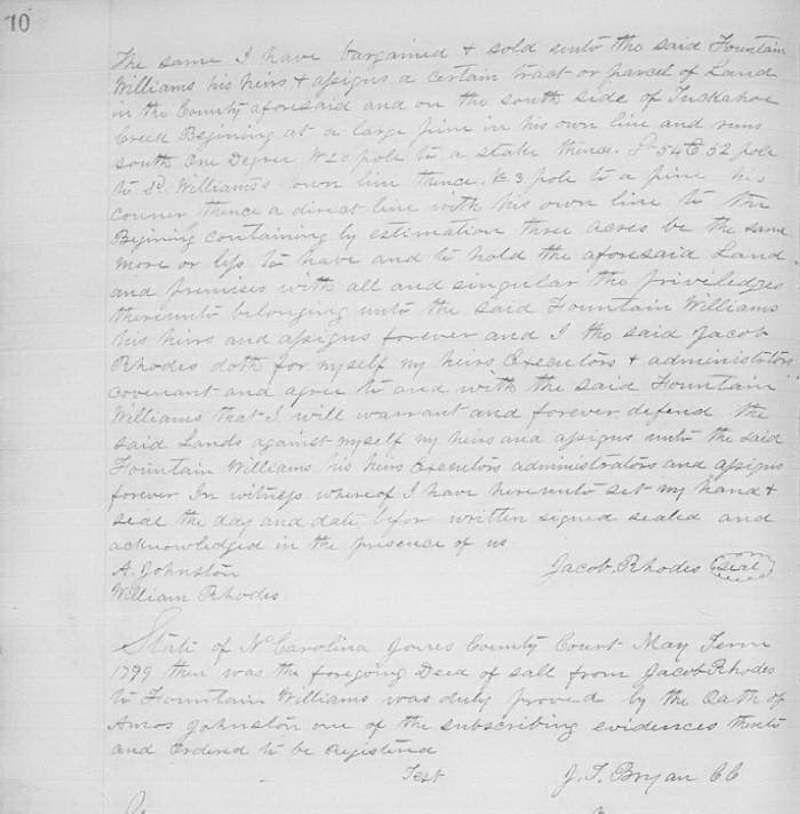 70
The same I have bargained & sold unto the said Fountain
Williams his heirs & assigns a certain tract or parcel of Land
in the County aforesaid and on the south side of Tuckahoe
Creek Begining at a large pine in his own line and runs
south One Degree W 20 pole to a stake thence S 54 E 52 pole
to Sd. Williams's own line thence 3 pole to a pine his
corner thence a direct line with his own line to the
Begining containing by estimation three acres be the same
more or less to have and to hold the aforesaid Land
and premises with all and singular the priviledges
thereunto belonging unto the said Fountain Williams
his heirs and assigns forever and I the said Jacob
Rhodes doth for myself my heirs Executors & administrators
covenant and agree to and with the said Fountain
Williams that I will warrant and forever defend the
said Lands against myself my heirs and assigns unto the said
Fountain Williams his heirs Executors administrators and assigns
forever In witness whereof I have hereunto set my hand &
seal the day and date befor written signed sealed and
acknowledged in the presence of us
A. Johnston Jacob. Rhodes seal
William Rhodes
State of No Carolina Jones County Court May Term
1799 then was the foregoing Deed of sall from Jacob Rhodes
to Fountain Williams was duly proved by the Oath of
Amos Johnston one of the subscribing evidences thereto
and Ordered to be registered
Test J. T. Bryan CC